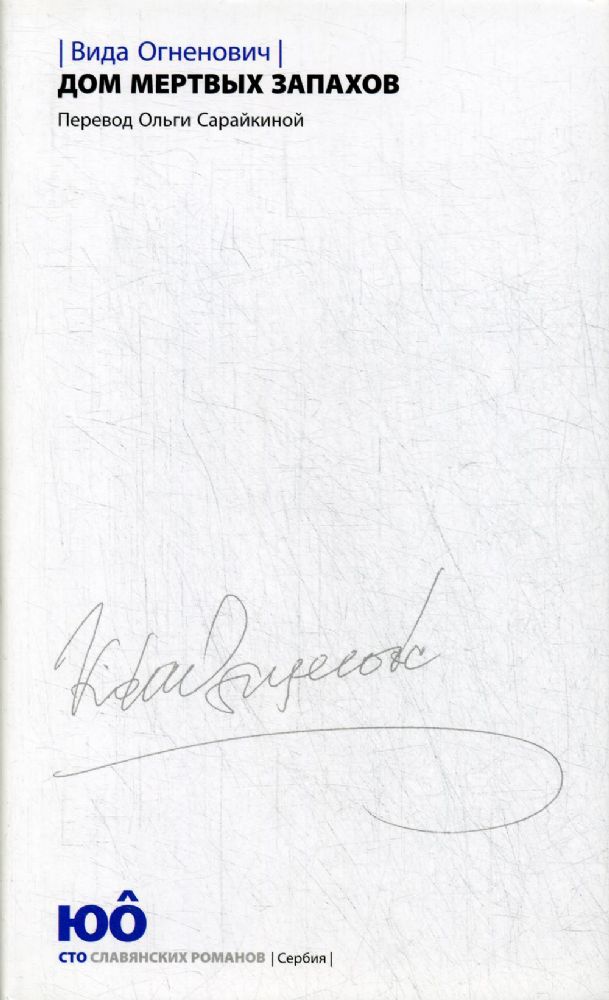 |Вида Огненович|
ДОМ МЕРТВЫХ ЗАПАХОВ
Перевод Ольги Сарайкиной
ЮÔ
СТО СЛАВЯНСКИХ РОМАНОВ |Сербия|